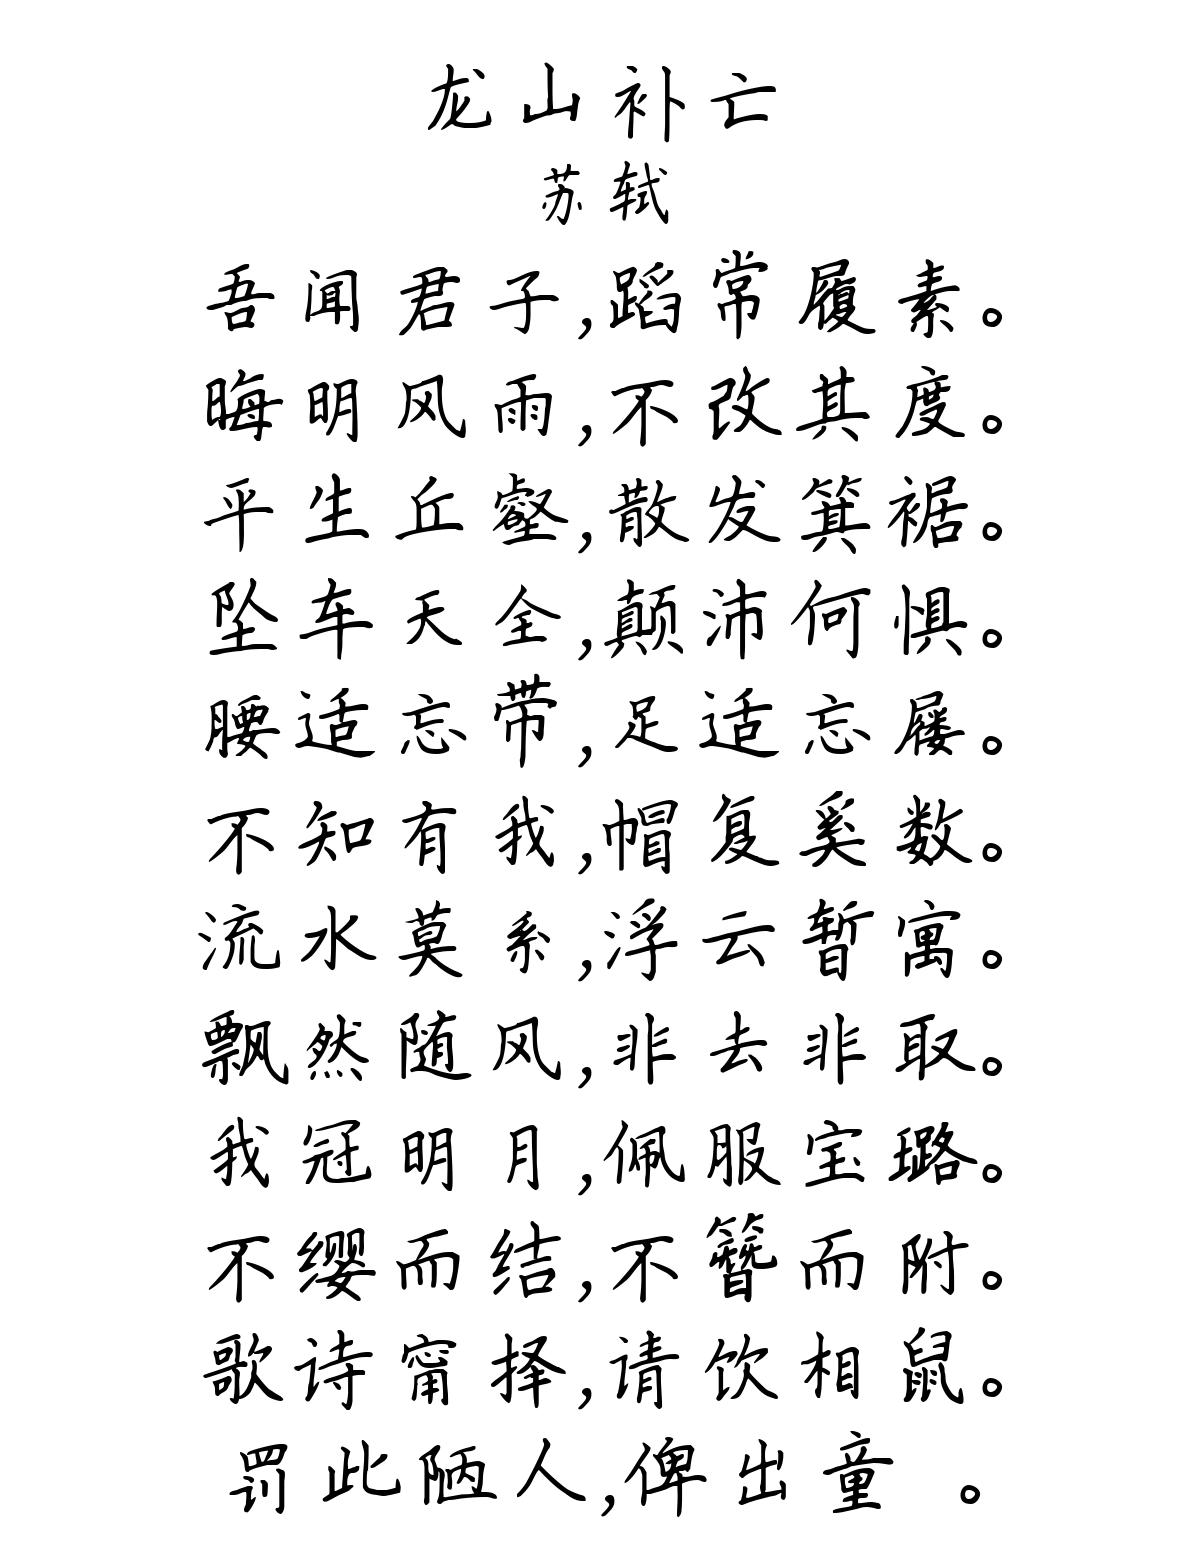 龙山补亡
苏轼
吾闻君子,蹈常履素。
晦明风雨,不改其度。
平生丘壑,散发箕裾。
坠车天全,颠沛何惧。
腰适忘带,足适忘屦。
不知有我,帽复奚数。
流水莫系,浮云暂寓。
飘然随风,非去非取。
我冠明月,佩服宝璐。
不缨而结,不簪而附。
歌诗甯择,请饮相鼠。
罚此陋人,俾出童 。